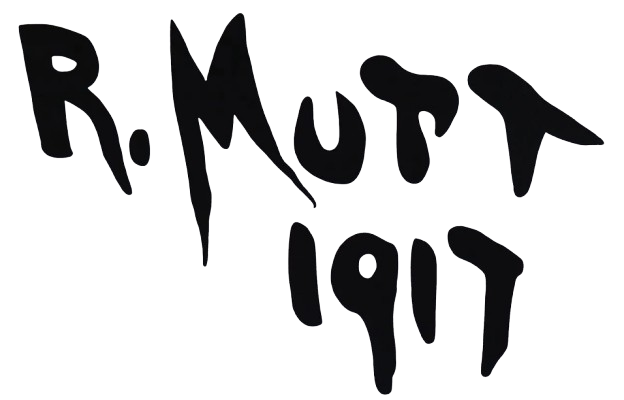 R. MUTT
1917